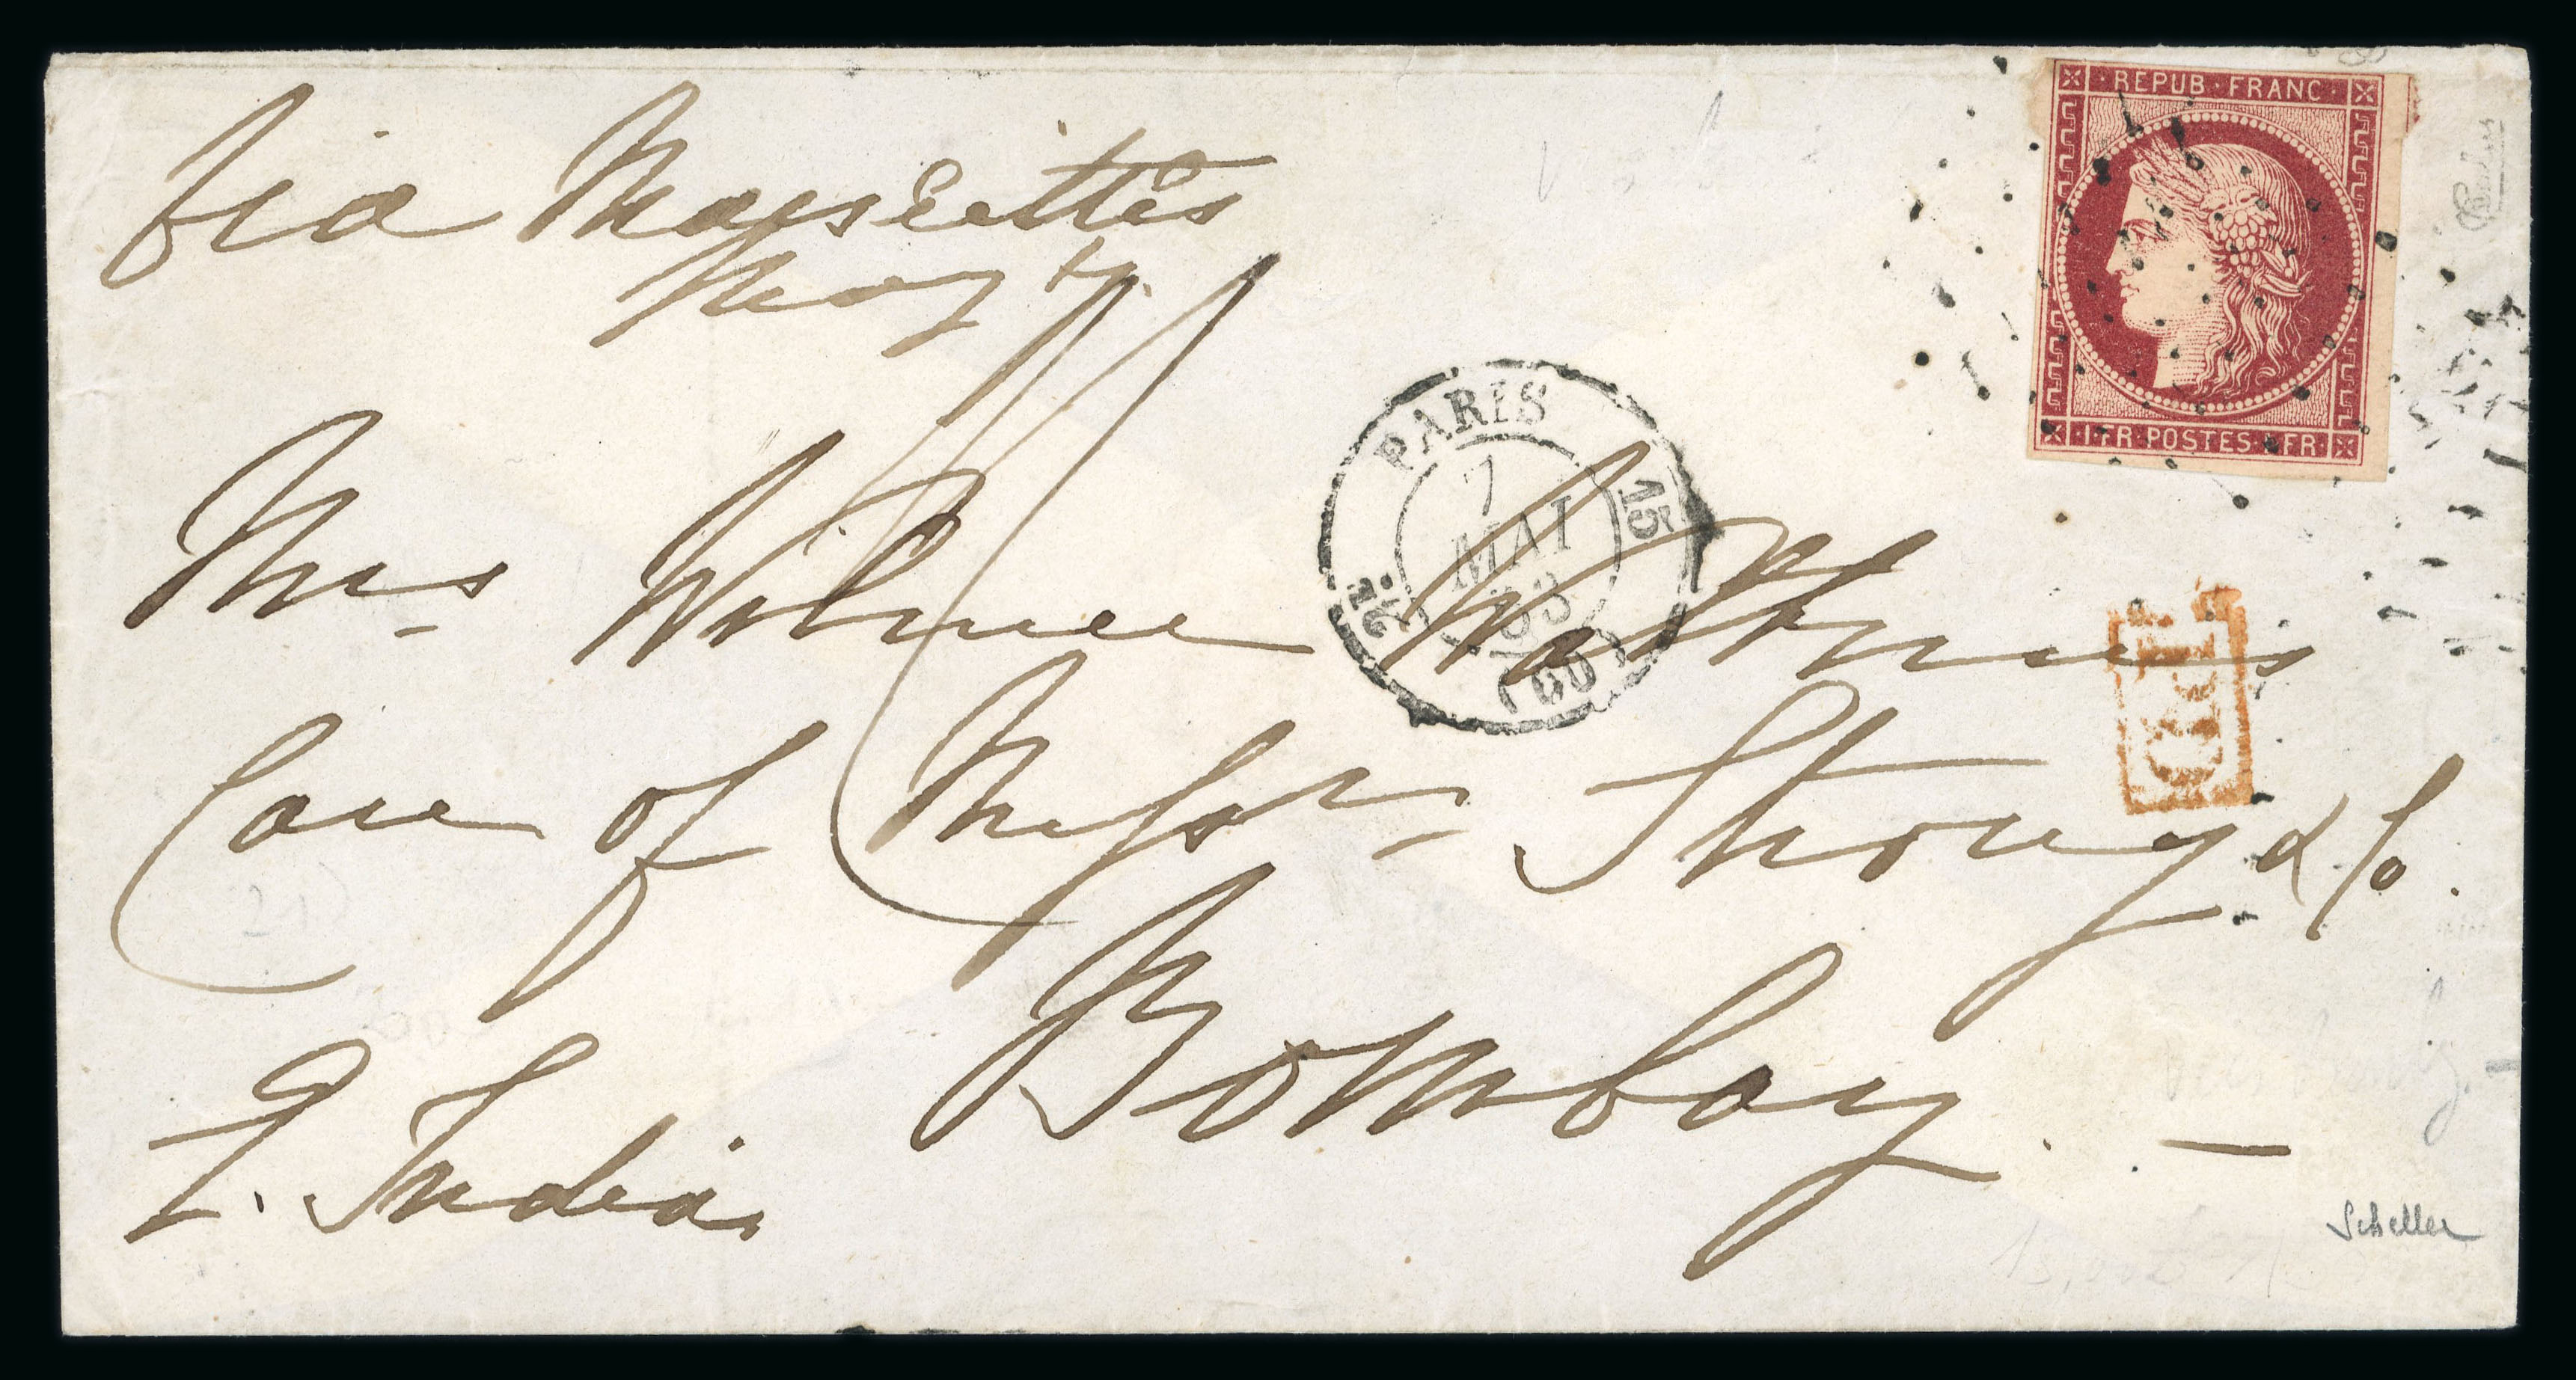 REPUB · FRANC ·
1 FR · POSTES · 1 FR ·
via Marseilles
May 7
PARIS
7
MAI
53
(60)
15
2E
PD
Mrs Wilmer
Care of Messrs Strong & Co.
Bombay. —
E. India.
Scheller